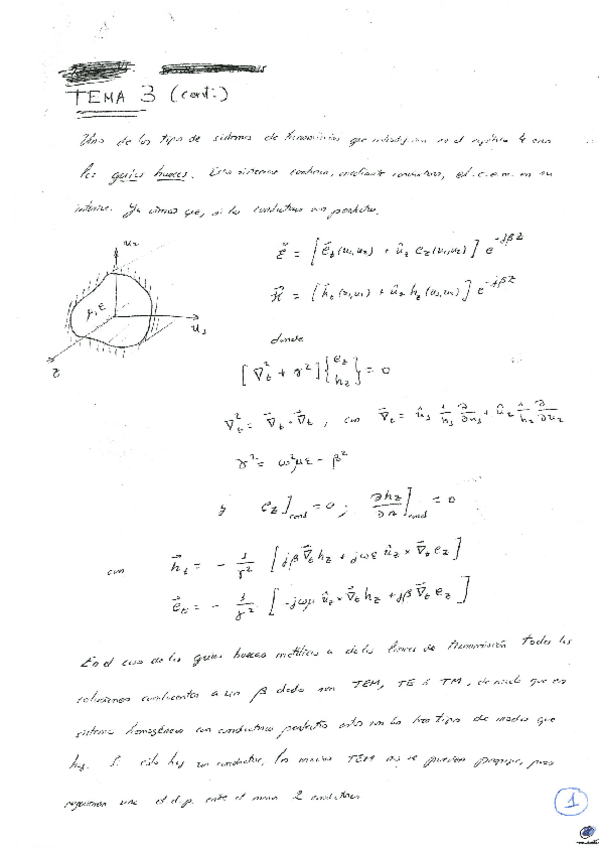 TEMA 3 (cont.)
Uno de los tipos de sistemas de transmisión que introdujimos en el capítulo 1 eran
las guías huecas. Estos sistemas confinan, mediante conductores, el c.e.m. en su
interior. Ya vimos que, si los conductores son perfectos,
u₂
μ,ε
u₁
z
ℰ⃗ = [e⃗_t(u₁,u₂) + û_z e_z(u₁,u₂)] e^{-jβz}
ℋ⃗ = [h⃗_t(u₁,u₂) + û_z h_z(u₁,u₂)] e^{-jβz}
donde
[∇_t² + γ²]{e_z h_z} = 0
∇_t² = ∇⃗_t·∇⃗_t , con ∇⃗_t = û₁ 1/h₁ ∂/∂u₁ + û₂ 1/h₂ ∂/∂u₂
γ² = ω²με - β²
y e_z]_cond = 0 ; ∂h_z/∂n]_cond = 0
con h⃗_t = - 1/γ² [jβ∇⃗_t h_z + jωε û_z × ∇⃗_t e_z]
e⃗_t = - 1/γ² [-jωμ û_z × ∇⃗_t h_z + jβ∇⃗_t e_z]
En el caso de las guías huecas metálicas o de las líneas de transmisión todas las
soluciones a un β dado son TEM, TE ó TM, de modo que en
sistema homogéneo con conductores perfectos estos son los tres tipos de modos que
hay. Si sólo hay un conductor, los modos TEM no se pueden propagar, pues
requieren una d.d.p. entre al menos 2 conductores
1